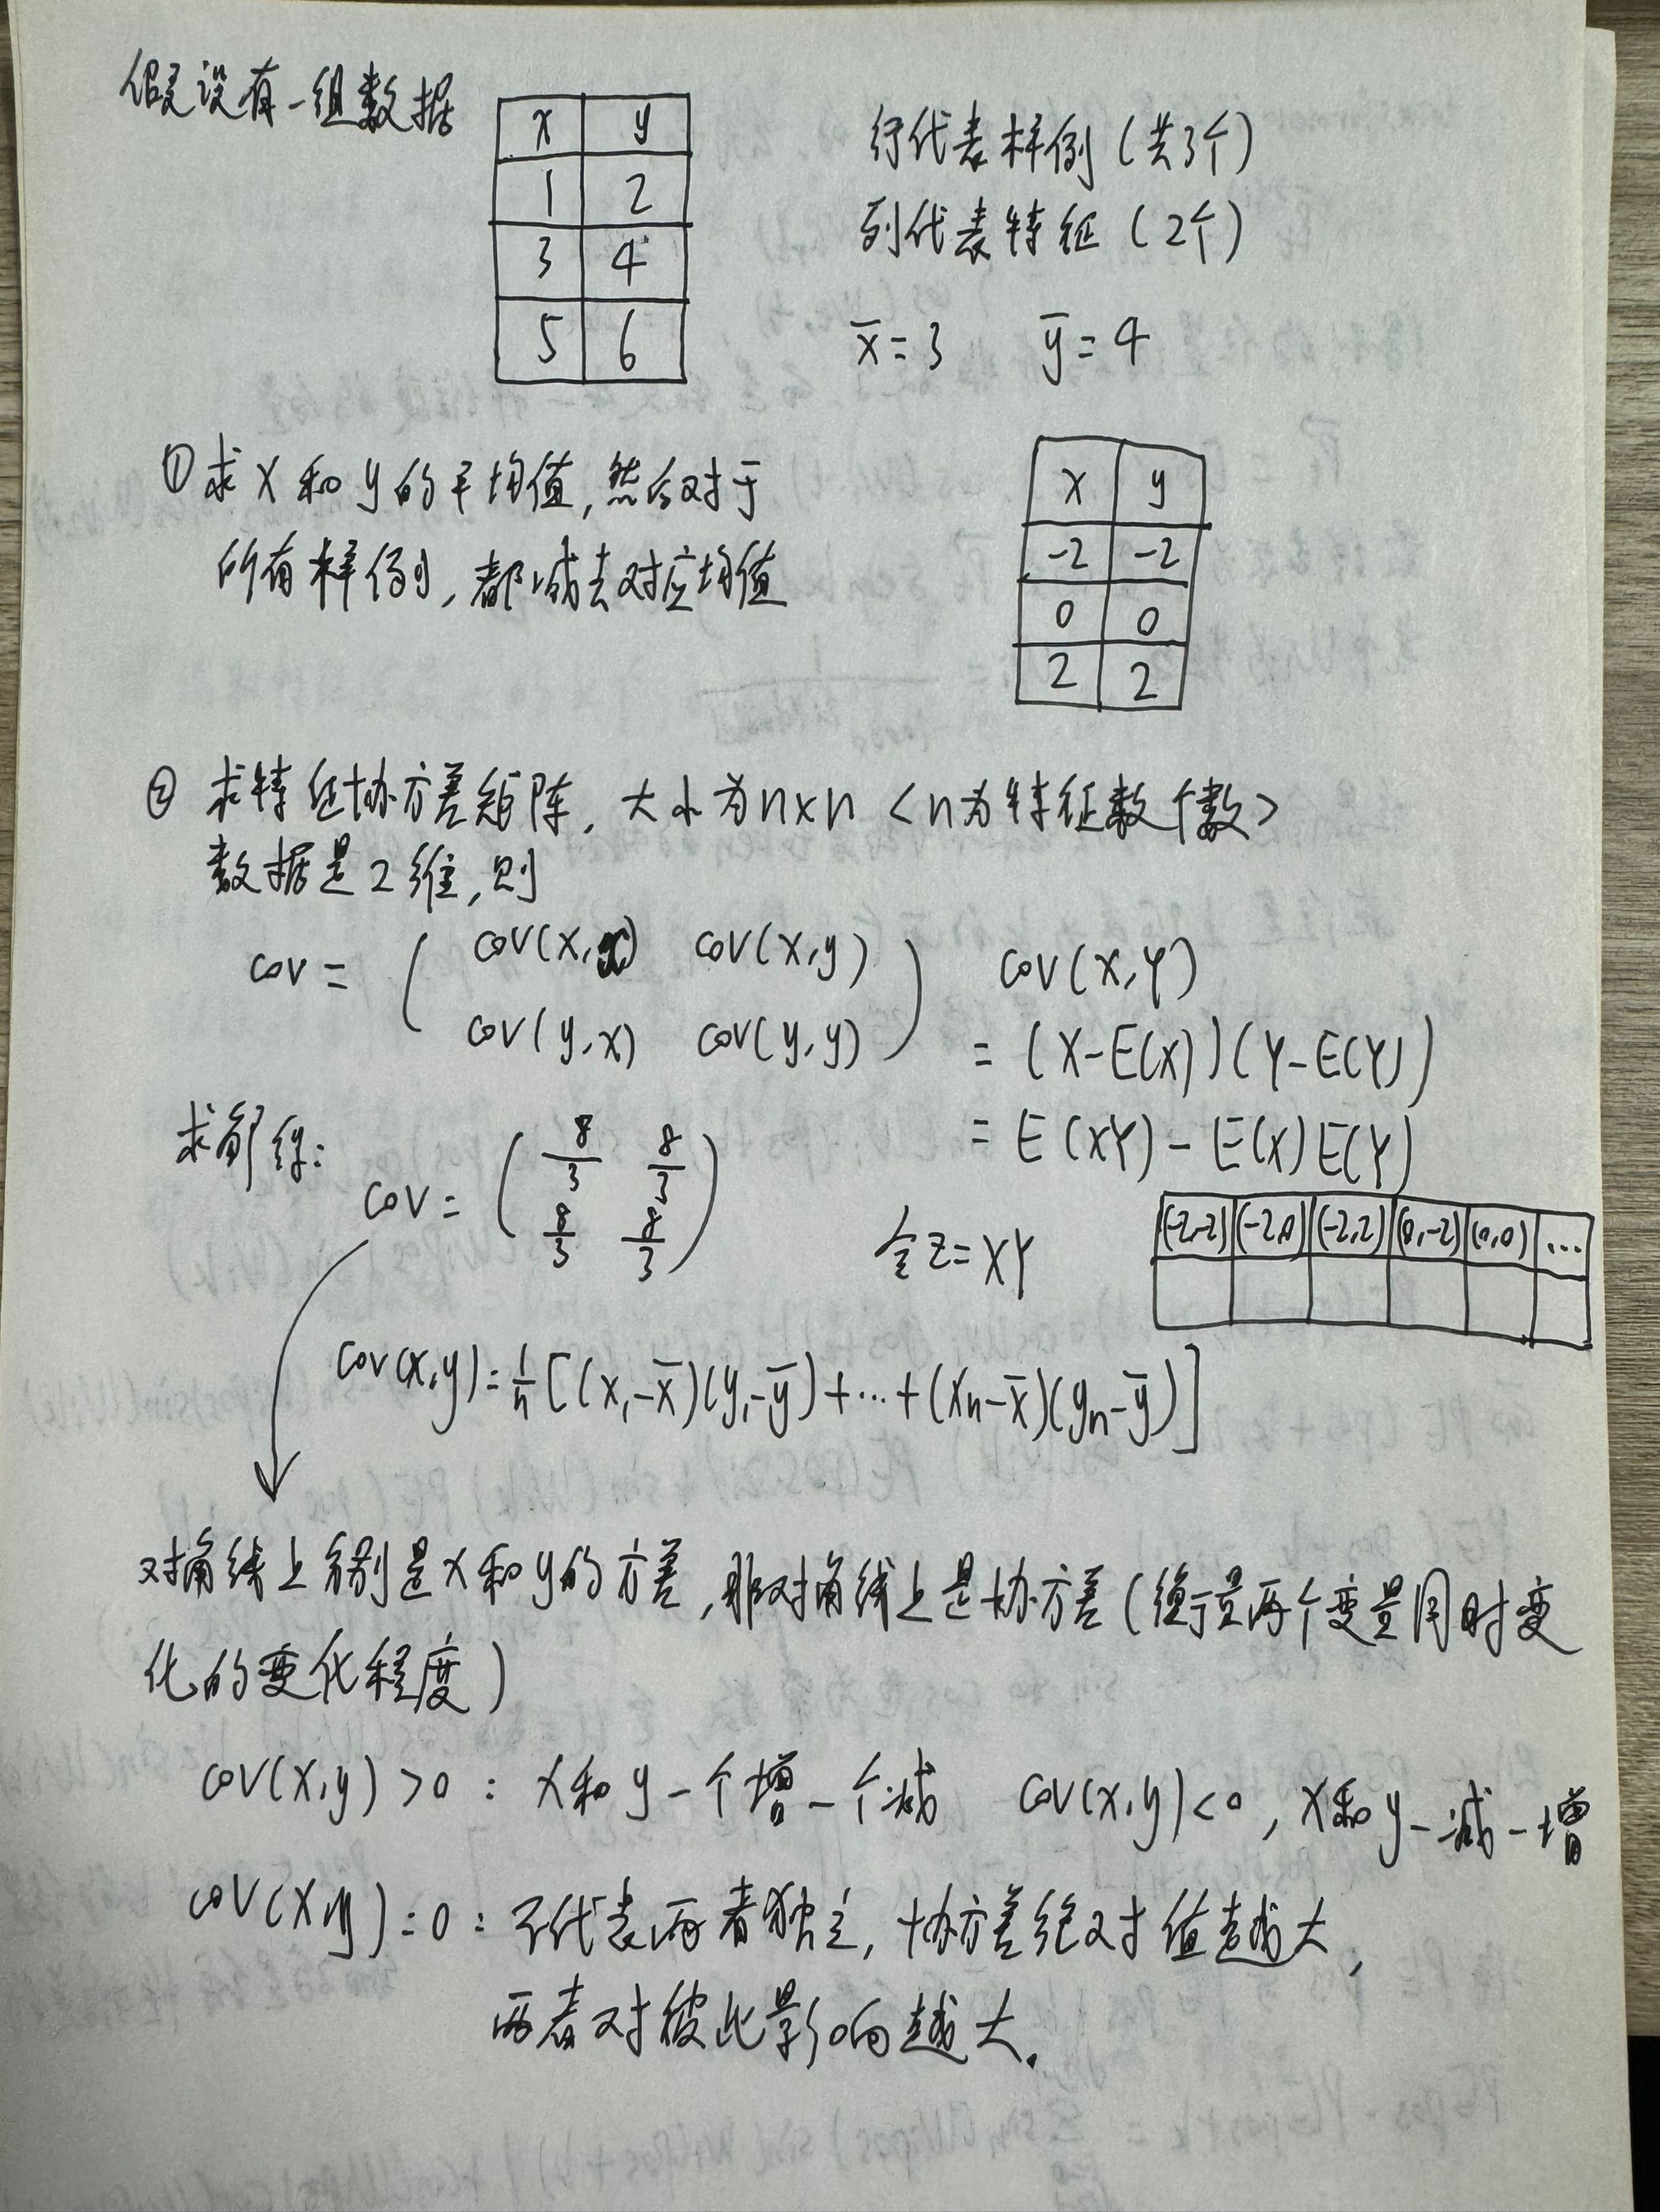 假设有一组数据
x y
1 2
3 4
5 6
行代表样例(共3个)
列代表特征(2个)
x̄=3 ȳ=4
①求x和y的平均值,然后对于
所有样例,都减去对应均值
x y
-2 -2
0 0
2 2
② 求特征协方差矩阵,大小为n×n <n为特征数个数>
数据是2维,则
cov = ( cov(x,x) cov(x,y)
cov(y,x) cov(y,y) )
cov(X,Y)
= (X-E(X))(Y-E(Y))
= E(XY)-E(X)E(Y)
求解得:
cov = ( 8/3 8/3
8/3 8/3 )
令Z=XY
(-2,-2) (-2,0) (-2,2) (0,-2) (0,0) ...
cov(x,y)=1/n[(x₁-x̄)(y₁-ȳ)+...+(xn-x̄)(yn-ȳ)]
对角线上分别是x和y的方差,非对角线上是协方差(衡量两个变量同时变
化的变化程度)
cov(x,y)>0:x和y一个增一个减 cov(x,y)<0,x和y一减一增
cov(x,y)=0:不代表两者独立,协方差绝对值越大,
两者对彼此影响越大.